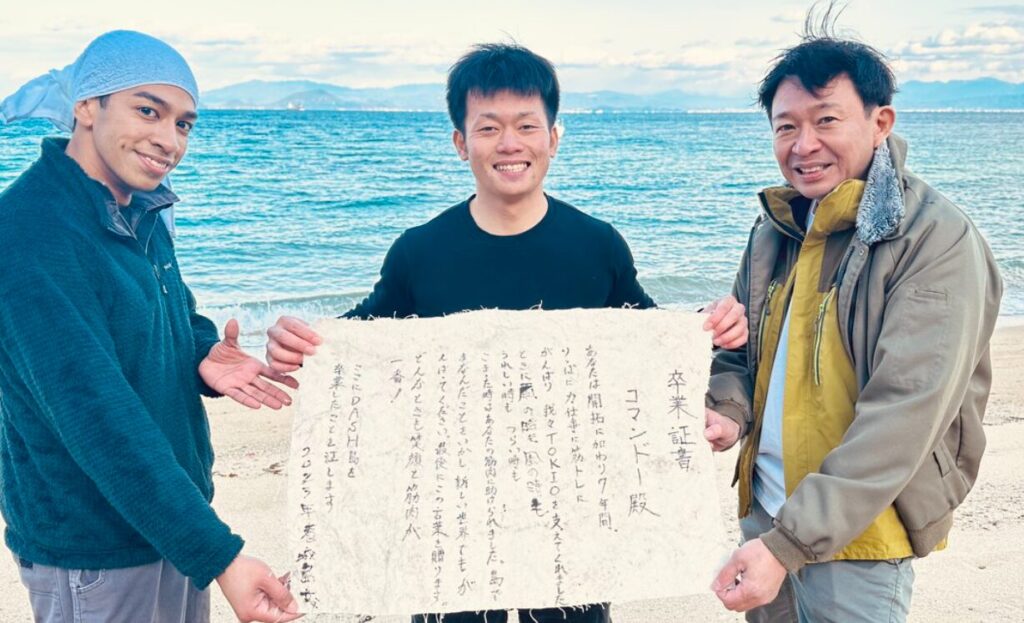 卒業証書
コマンドー殿
あなたは開拓に加わり7年間、
りっぱに力仕事に筋トレに
がんばり 我々TOKIOを支えてくれました
ときに の時も 風の時も
うれしい時も つらい時も
こまた時はあなたの筋肉に助けられました。島で
まなんだことをいかし新しい世界でも が
んばってください。最後にこの言葉を贈ります
どんなときも笑顔と筋肉が
一番!
ここにDASH島を
卒業したことを証します
城島